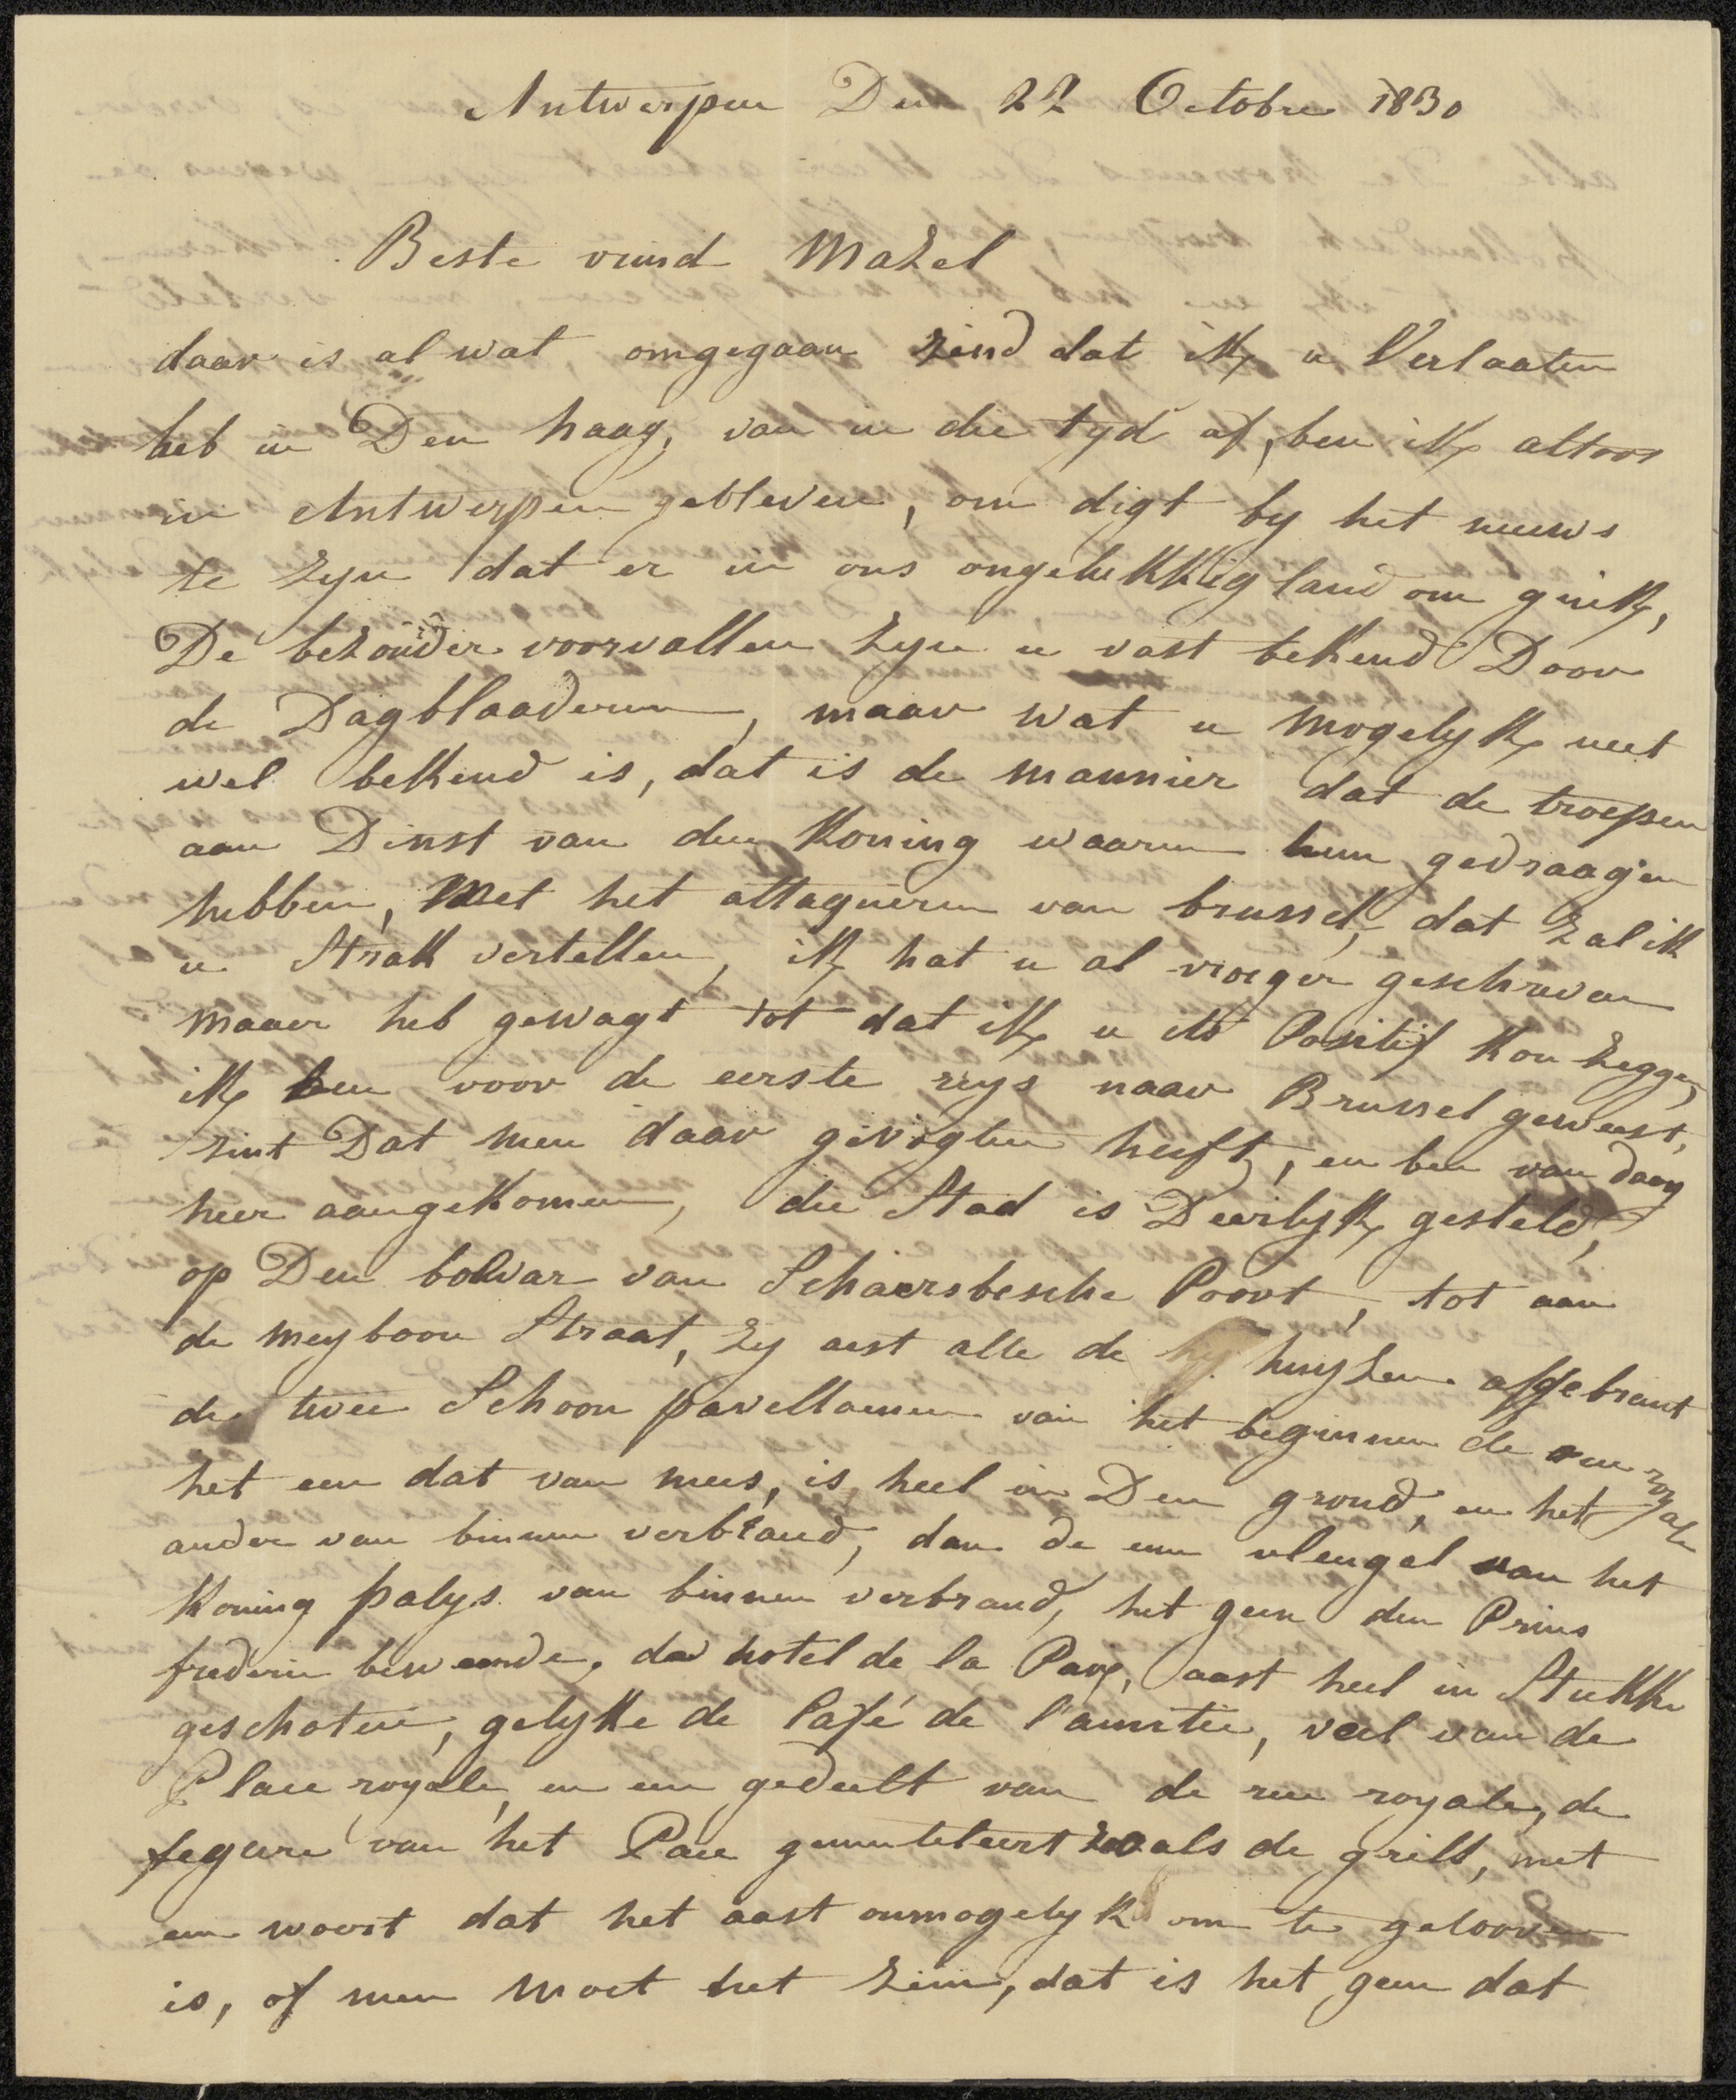 Antwerpen Den 22 Octobre 1830
Beste vrind Mazel
daar is al wat omgegaan zind dat ik u Verlaaten
heb in Den haag, van in die tyd af, ben ik altoos
in Antwerpen gebleven, om digt by het nieuws
te zyn dat er in ons ongelukkig land om gink,
De bezonder voorvallen zyn u vast bekend Door
de Dagblaaderen, maar wat u mogelyk niet
wel bekend is, dat is de mannier dat de troepen
aan Dinst van den Koning waaren hun gedraagen
hebben, Met het attaqueren van brussel, dat zal ik
u Strak vertellen, ik hat u al vroeger geschreven
maaer heb gewagt tot dat ik u ets Positif kon zeggen,
ik ben voor de eerste rys naar Brussel geweest,
sint Dat men daar gevogten heeft, en ben van daag
heer aangekomen, die Stad is Deerlyk gesteld,
op Den bolvar van Schaersbesche Poort, tot aan
de meyboon Straat, zy aest alle de huyzen afgebrant
de twee Schoon pavellaenen van het beginnen de rue royale
het een dat van mees, is heel in Den grond, en het
ander van binnen verbrand, dan de enn vleugel van het
Koning palys van binnen verbrand, het geen den Prins
frederic bewoonde, de hotel de la Paix, aast heel in Stukke
geschoten, gelykke de Café de l'amitie, veel van de
Place royale, en een gedeelt van de rue royale, de
fegure van het Parc gemuteleert zoo als de grill, met
een woort dat het aast onmogelyk om te gelooven
is, of men moet het zien, dat is het geen dat